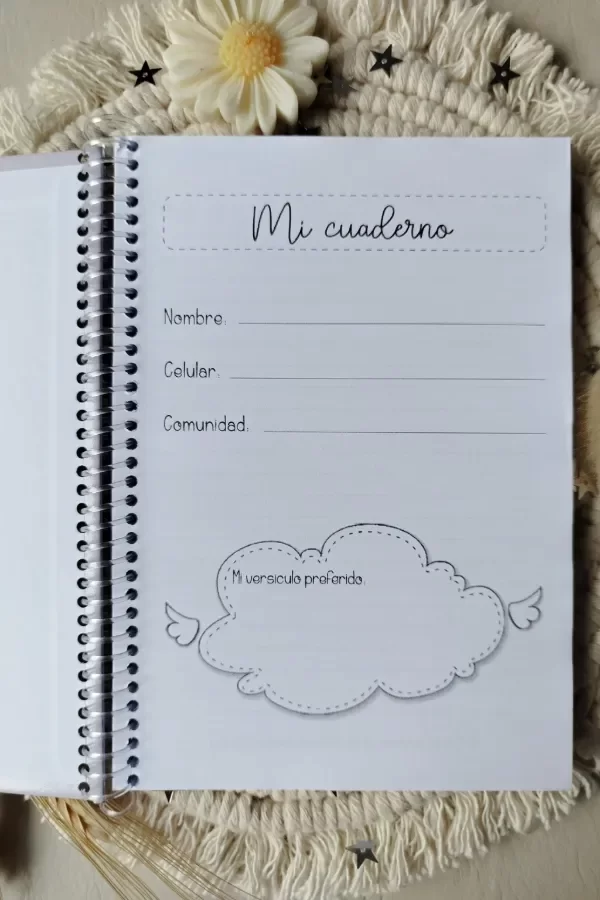 Mi cuaderno
Nombre:
Celular:
Comunidad:
Mi versiculo preferido: